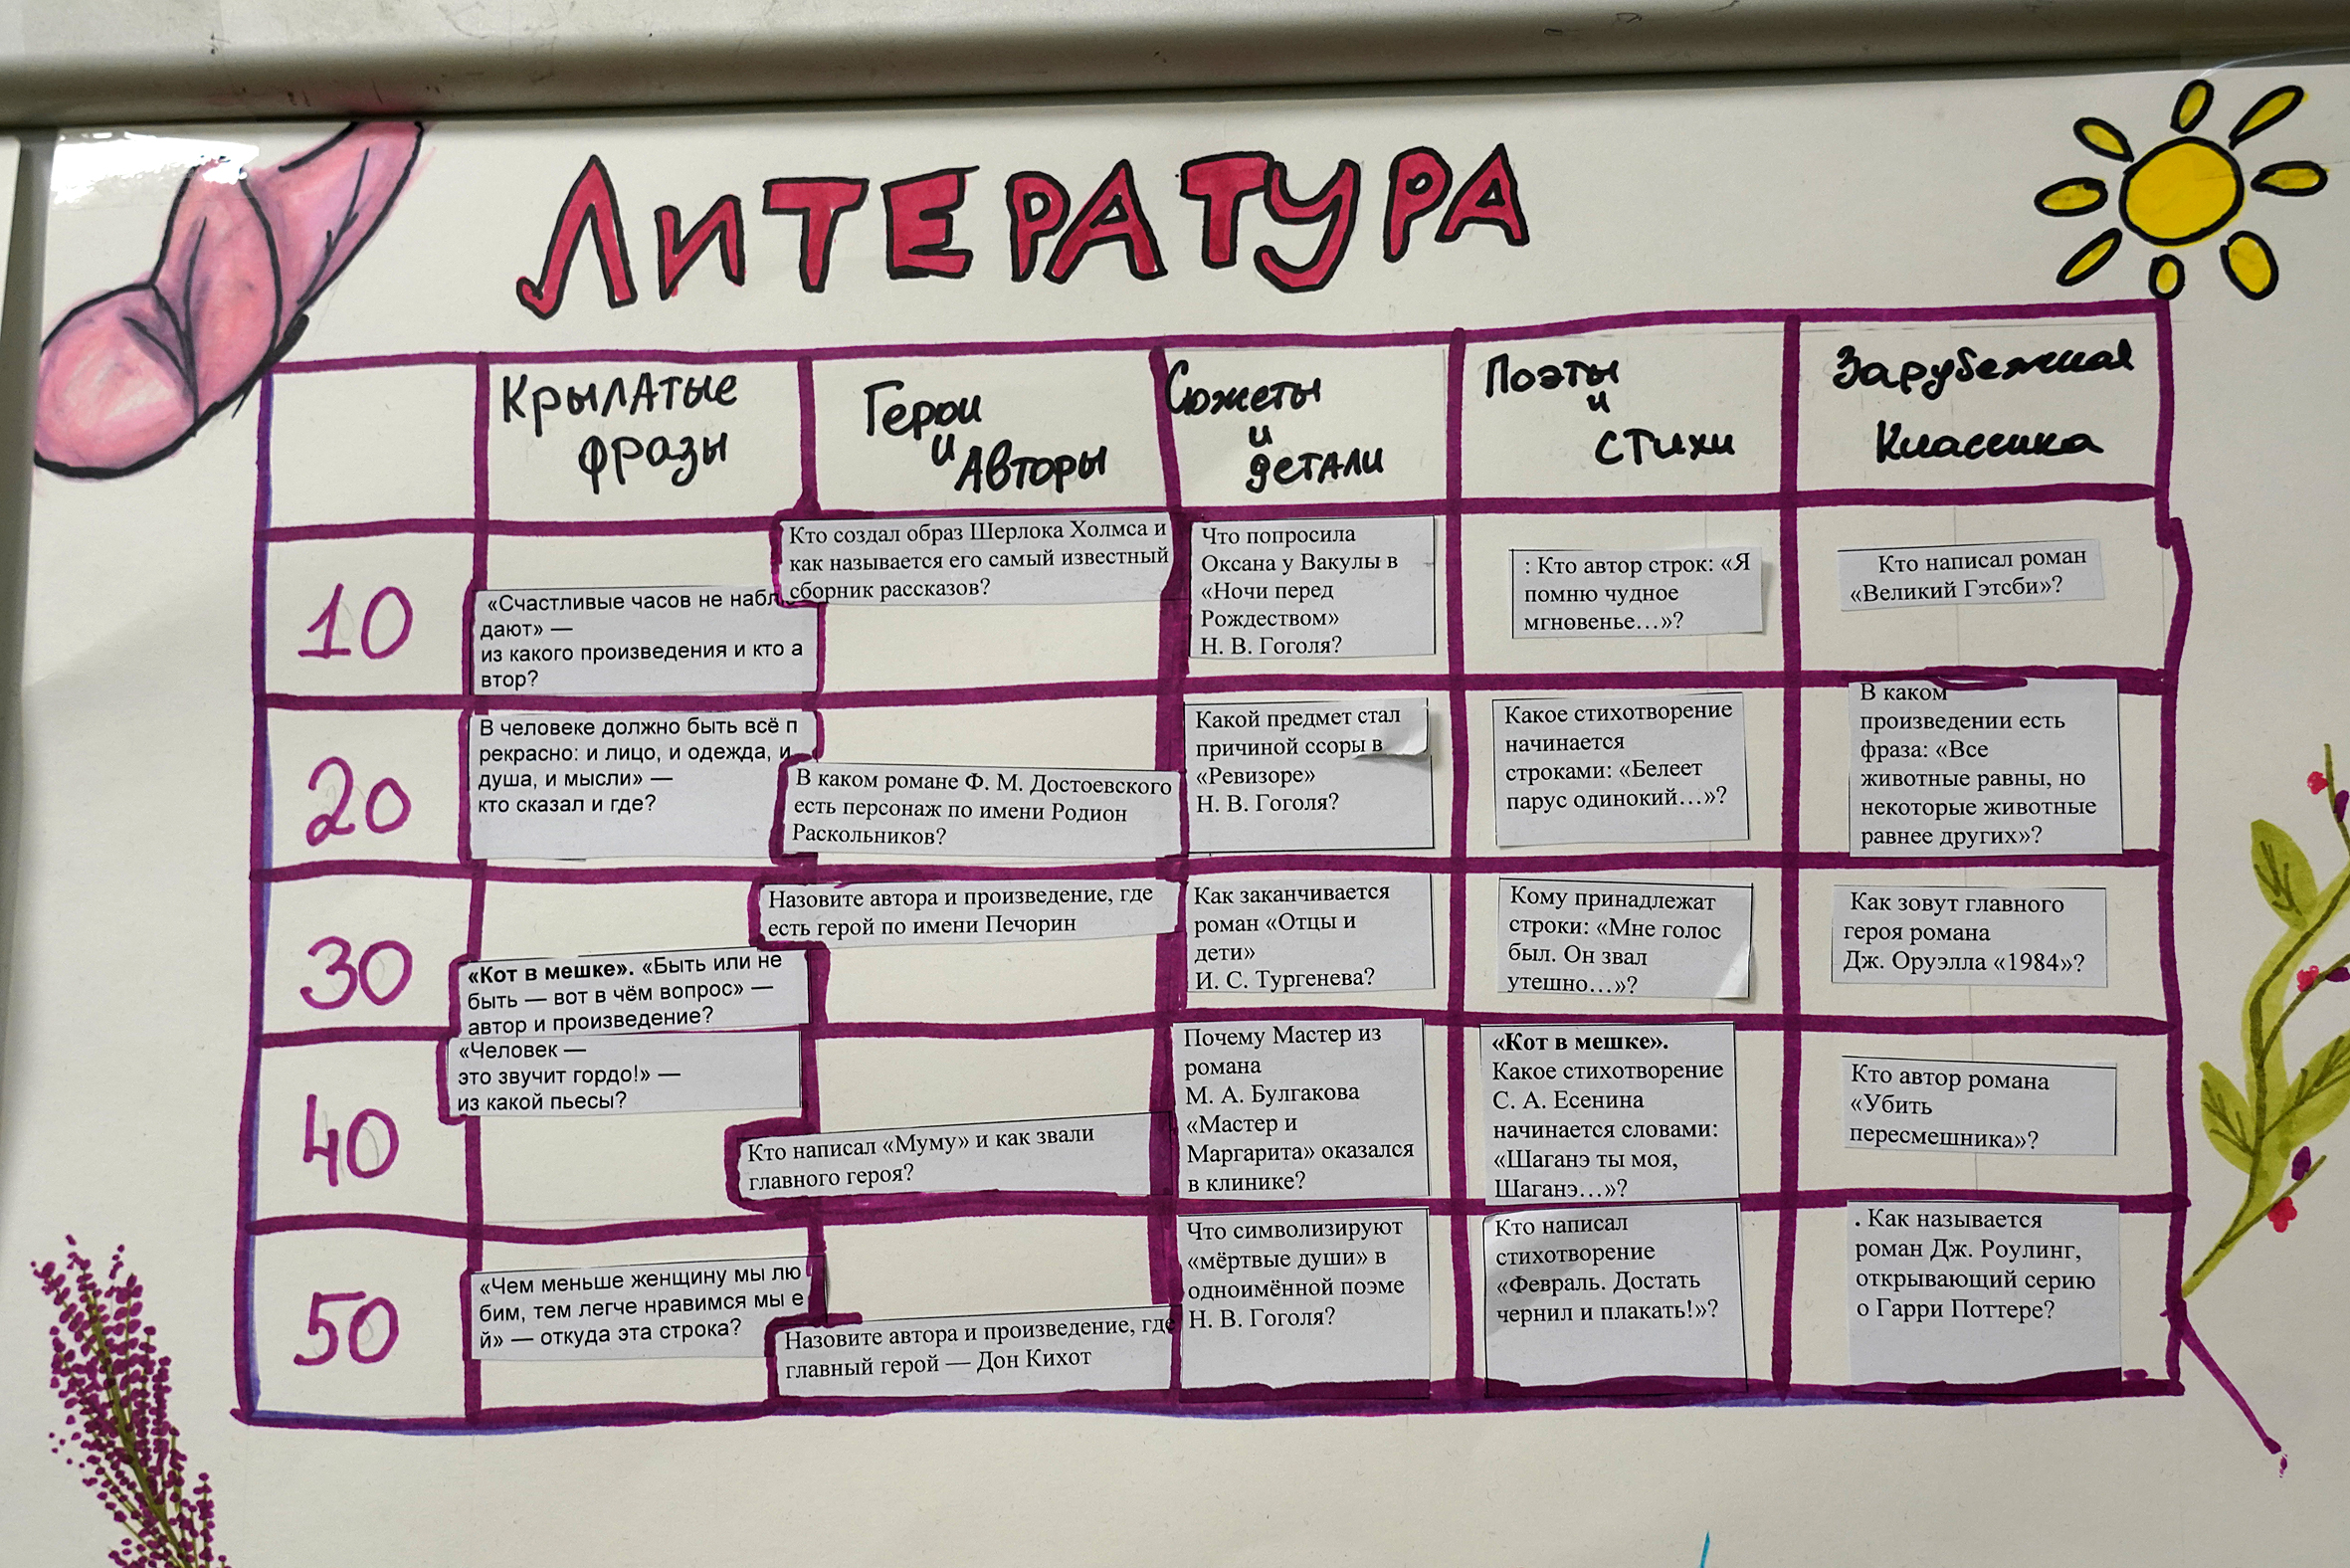 ЛИТЕРАТУРА
Крылатые
фразы
Герои
и
Авторы
Сюжеты
и
детали
Поэты
и
стихи
Зарубежная
Классика
10
«Счастливые часов не набл
дают» —
из какого произведения и кто а
втор?
Кто создал образ Шерлока Холмса и
как называется его самый известный
сборник рассказов?
Что попросила
Оксана у Вакулы в
«Ночи перед
Рождеством»
Н. В. Гоголя?
: Кто автор строк: «Я
помню чудное
мгновенье…»?
Кто написал роман
«Великий Гэтсби»?
20
В человеке должно быть всё п
рекрасно: и лицо, и одежда, и
душа, и мысли» —
кто сказал и где?
В каком романе Ф. М. Достоевского
есть персонаж по имени Родион
Раскольников?
Какой предмет стал
причиной ссоры в
«Ревизоре»
Н. В. Гоголя?
Какое стихотворение
начинается
строками: «Белеет
парус одинокий…»?
В каком
произведении есть
фраза: «Все
животные равны, но
некоторые животные
равнее других»?
30
«Кот в мешке». «Быть или не
быть — вот в чём вопрос» —
автор и произведение?
Назовите автора и произведение, где
есть герой по имени Печорин
Как заканчивается
роман «Отцы и
дети»
И. С. Тургенева?
Кому принадлежат
строки: «Мне голос
был. Он звал
утешно…»?
Как зовут главного
героя романа
Дж. Оруэлла «1984»?
40
«Человек —
это звучит гордо!» —
из какой пьесы?
Кто написал «Муму» и как звали
главного героя?
Почему Мастер из
романа
М. А. Булгакова
«Мастер и
Маргарита» оказался
в клинике?
«Кот в мешке».
Какое стихотворение
С. А. Есенина
начинается словами:
«Шаганэ ты моя,
Шаганэ…»?
Кто автор романа
«Убить
пересмешника»?
50
«Чем меньше женщину мы лю
бим, тем легче нравимся мы е
й» — откуда эта строка?
Назовите автора и произведение, где
главный герой — Дон Кихот
Что символизируют
«мёртвые души» в
одноимённой поэме
Н. В. Гоголя?
Кто написал
стихотворение
«Февраль. Достать
чернил и плакать!»?
. Как называется
роман Дж. Роулинг,
открывающий серию
о Гарри Поттере?